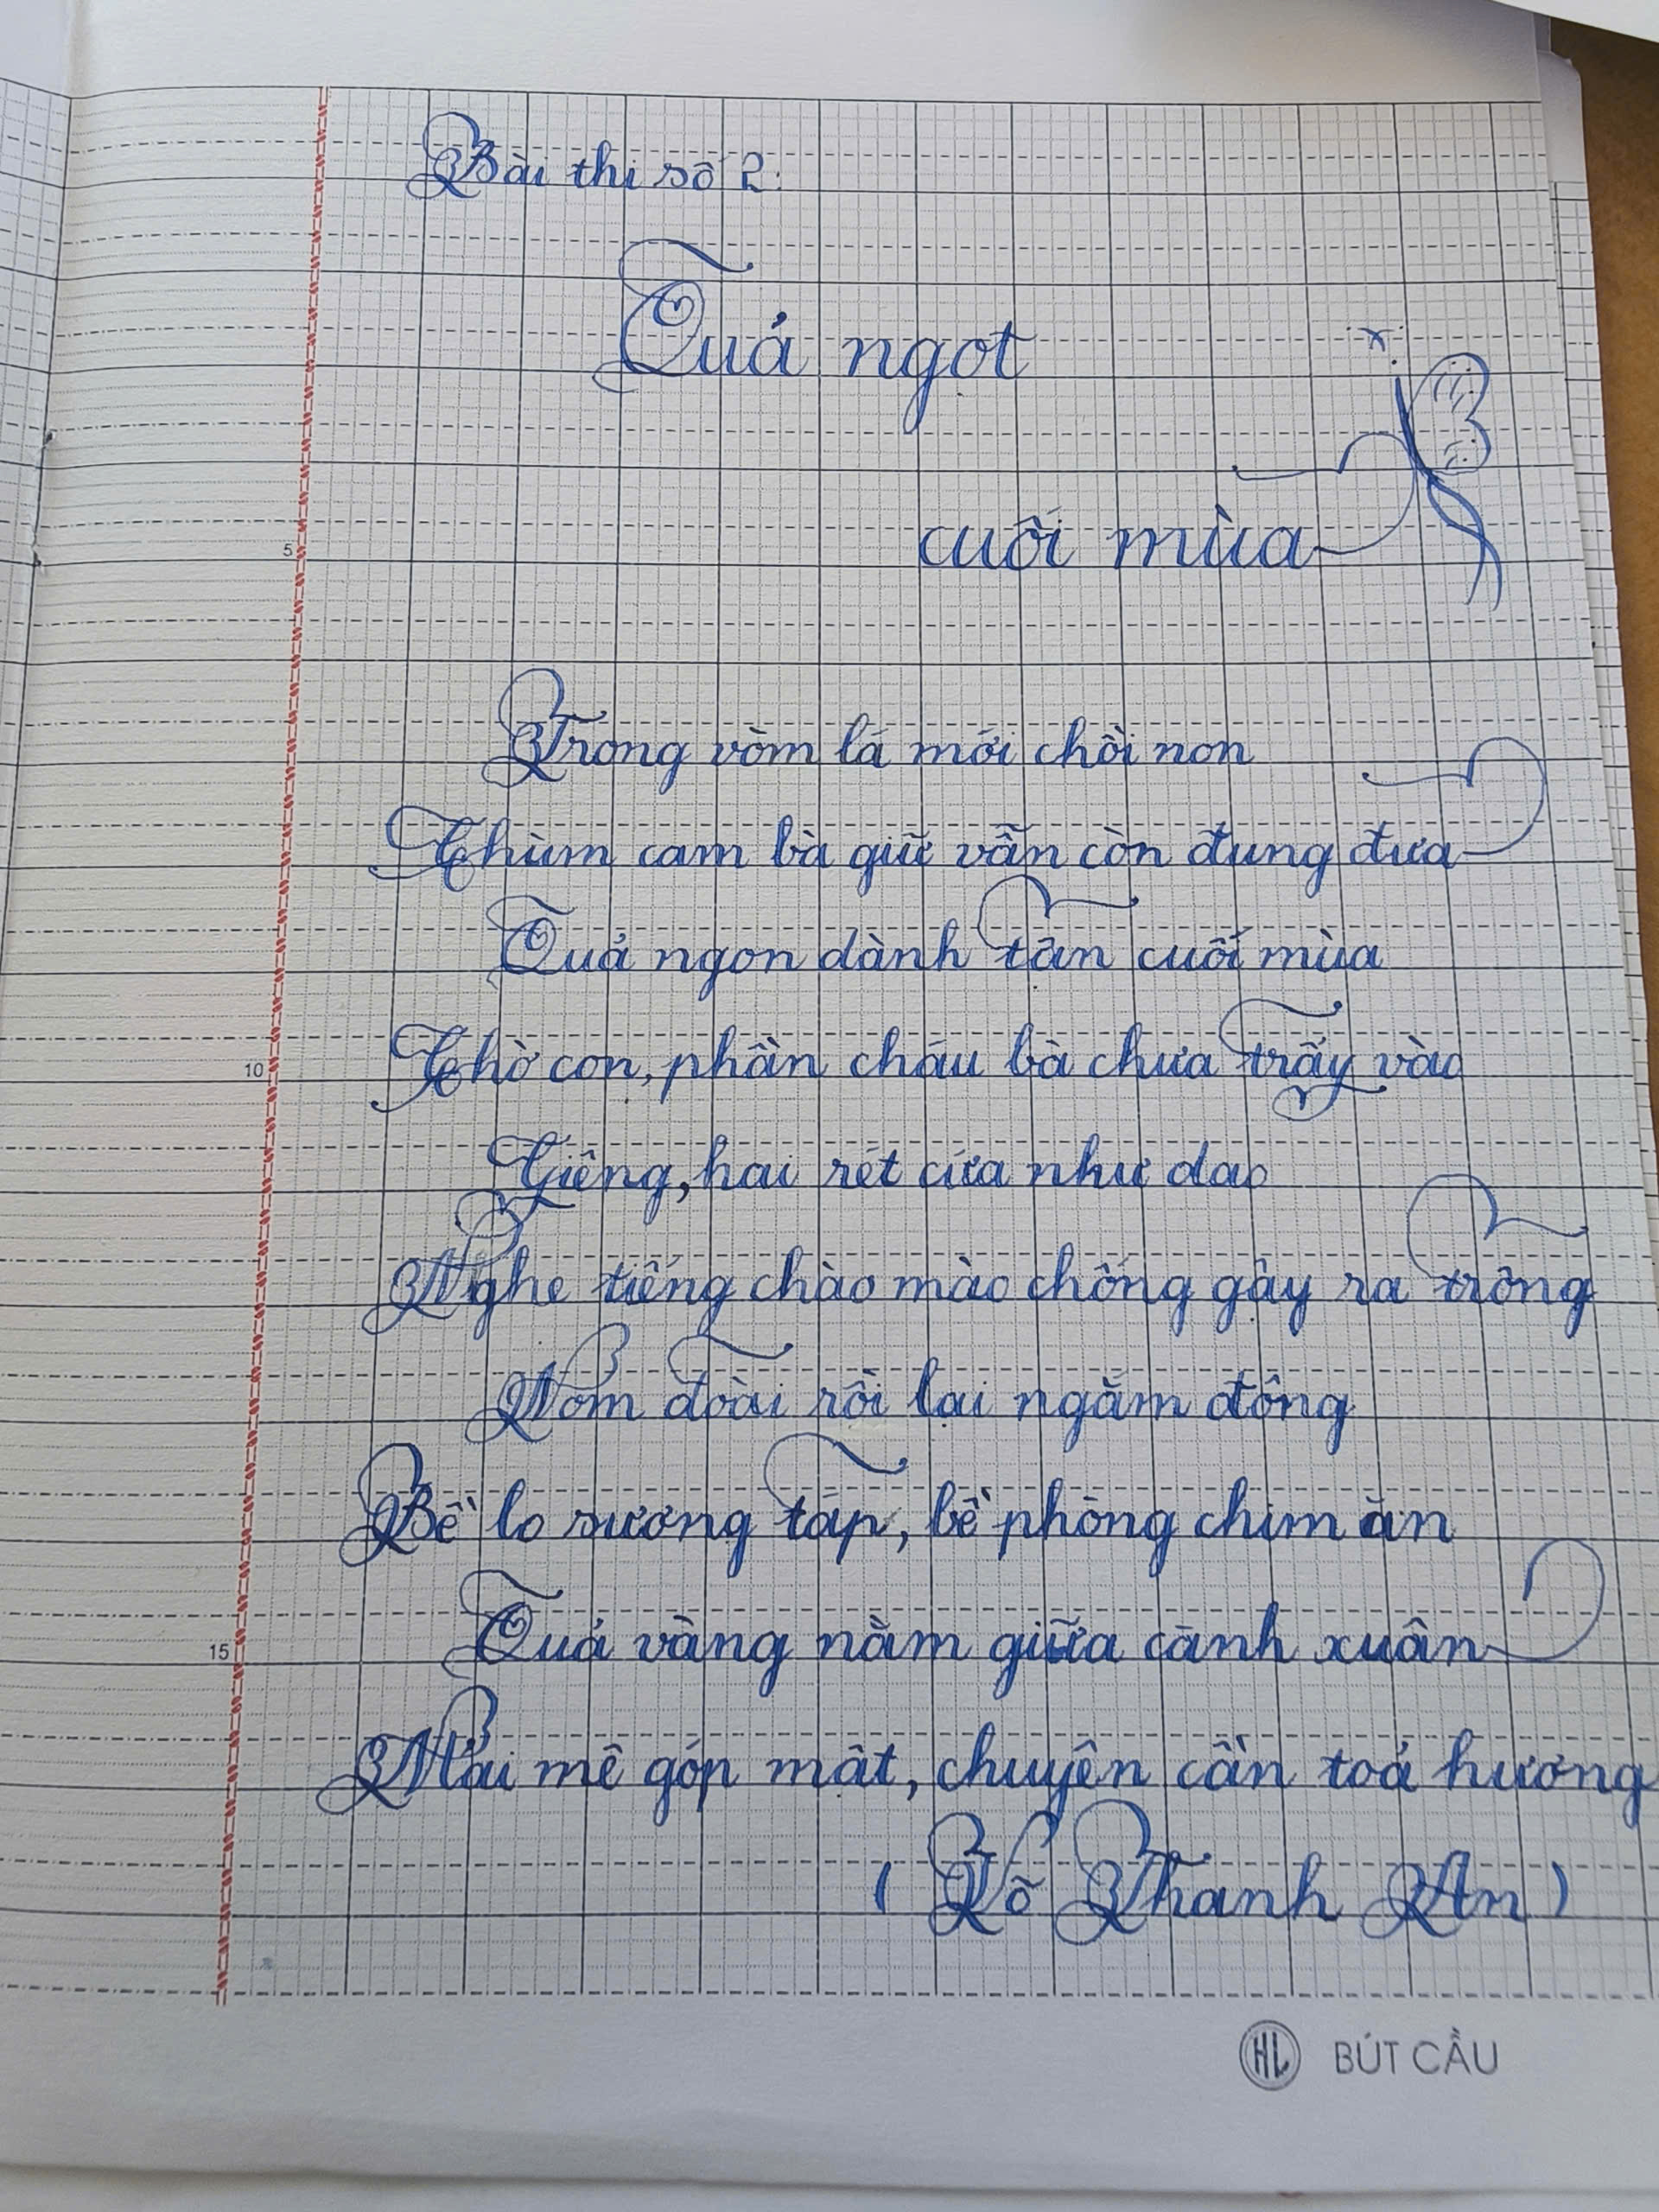 Bài thi số 2:
Quả ngọt
cuối mùa
Trong vòm lá mới chồi non
Chùm cam bà giữ vẫn còn đung đưa
Quả ngon dành tận cuối mùa
Chờ con, phần cháu bà chưa trẩy vào
5
10
Giêng, hai rét cứa như dao
Nghe tiếng chào mào chống gậy ra trông
Nom đoài rồi lại ngắm đông
Bề lo sương táp, bề phòng chim ăn
Quả vàng nằm giữa cành xuân
15
Mải mê góp mật, chuyên cần toả hương
( Võ Thanh An )
HL BÚT CẦU